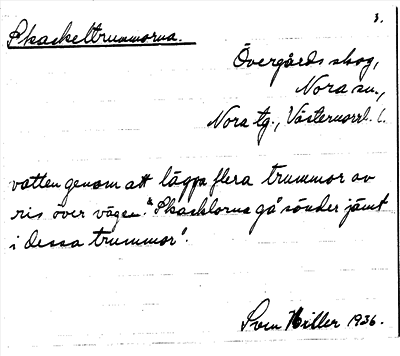 3.
Skackeltrummorna.
Övergårds skog,
Nora sn.,
Nora tg., Västernorrl. l.
vatten genom att lägga flera trummor av
ris över vägen. "Skacklorna gå sönder jämt
i dessa trummor".
Sven Hiller 1936.